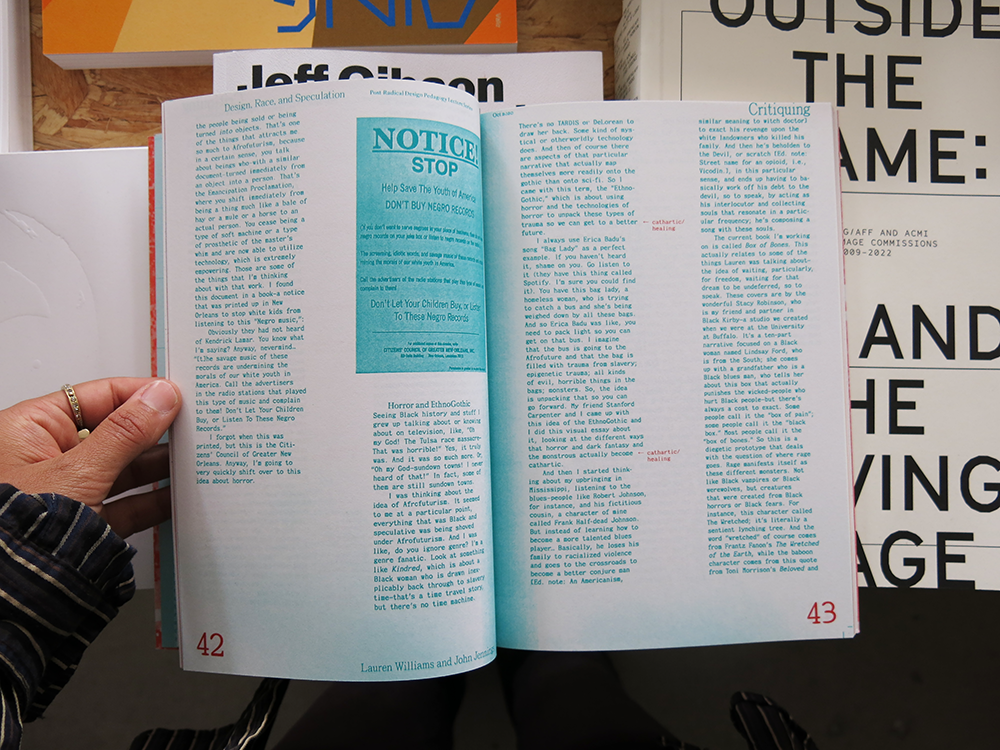 Jeff Gibson
OUTSIDE
THE
AME:
G/AFF AND ACMI
MAGE COMMISSIONS
009-2022
AND
HE
VING
AGE
Design, Race, and Speculation
Post Radical Design Pedagogy Lecture Series
the people being sold or being
turned into objects. That's one
of the things that attracts me
so much to Afrofuturism, because
in a certain sense, you talk
about beings who with a similar
document turned immediately from
an object into a person. That's
the Emancipation Proclamation,
where you shift immediately from
being a thing much like a bale of
hay or a mule or a horse to an
actual person. You cease being a
type of soft machine or a type
of prosthetic of the master's
whim and are now able to utilize
technology, which is extremely
empowering. Those are some of
the things that I'm thinking
about with that work. I found
this document in a book—a notice
that was printed up in New
Orleans to stop white kids from
listening to this "Negro music,":
Obviously they had not heard
of Kendrick Lamar. You know what
I'm saying? Anyway, nevermind...
"[t]he savage music of these
records are undermining the
morals of our white youth in
America. Call the advertisers
in the radio stations that played
this type of music and complain
to them! Don't Let Your Children
Buy, or Listen To These Negro
Records."
I forgot when this was
printed, but this is the Citi-
zens' Council of Greater New
Orleans. Anyway, I'm going to
very quickly shift over to this
idea about horror.
NOTICE!
STOP
Help Save The Youth of America
DON'T BUY NEGRO RECORDS
(If you don't want to serve negroes in your place of business, then do not have
negro records on your juke box or listen to negro records on the radio.)
The screaming, idiotic words, and savage music of these records are under-
mining the morals of our white youth in America.
Call the advertisers of the radio stations that play this type of music and
complain to them!
Don't Let Your Children Buy, or Listen
To These Negro Records
CITIZENS' COUNCIL OF GREATER NEW ORLEANS, INC.
Horror and EthnoGothic
Seeing Black history and stuff I
grew up talking about or knowing
about on television, like, "Oh
my God! The Tulsa race massacre—
That was horrible!" Yes, it truly
was. And it was so much more. Or,
"Oh my God—sundown towns! I never
heard of that!" In fact, some of
them are still sundown towns.
I was thinking about the
idea of Afrofuturism. It seemed
to me at a particular point,
everything that was Black and
speculative was being shoved
under Afrofuturism. And I was
like, do you ignore genre? I'm a
genre fanatic. Look at something
like Kindred, which is about a
Black woman who is drawn inex-
plicably back through to slavery
time—that's a time travel story,
but there's no time machine.
42
Lauren Williams and John Jennings
Critiquing
There's no TARDIS or DeLorean to
draw her back. Some kind of mys-
tical or otherworldly technology
does. And then of course there
are aspects of that particular
narrative that actually map
themselves more readily onto the
gothic than onto sci-fi. So I
came with this term, the "Ethno-
Gothic," which is about using
horror and the technologies of
horror to unpack these types of
trauma so we can get to a better
future.
← cathartic/
healing
I always use Erica Badu's
song "Bag Lady" as a perfect
example. If you haven't heard
it, shame on you. Go listen to
it (they have this thing called
Spotify. I'm sure you could find
it). You have this bag lady, a
homeless woman, who is trying
to catch a bus and she's being
weighed down by all these bags.
And so Erica Badu was like, you
need to pack light so you can
get on that bus. I imagine
that the bus is going to the
Afrofuture and that the bag is
filled with trauma from slavery;
epigenetic trauma; all kinds
of evil, horrible things in the
bags; monsters. So, the idea
is unpacking that so you can
go forward. My friend Stanford
Carpenter and I came up with
this idea of the EthnoGothic and
I did this visual essay about
it, looking at the different ways
that horror and dark fantasy and
the monstrous actually become
cathartic.
← cathartic/
healing
And then I started think-
ing about my upbringing in
Mississippi, listening to the
blues—people like Robert Johnson,
for instance, and his fictitious
cousin, a character of mine
called Frank Half-dead Johnson.
But instead of learning how to
become a more talented blues
player… Basically, he loses his
family to racialized violence
and goes to the crossroads to
become a better conjure man
(Ed. note: An Americanism,
similar meaning to witch doctor)
to exact his revenge upon the
white landowners who killed his
family. And then he's beholden to
the Devil, or scratch (Ed. note:
Street name for an opioid, i.e.,
Vicodin.), in this particular
sense, and ends up having to ba-
sically work off his debt to the
devil, so to speak, by acting as
his interlocutor and collecting
souls that resonate in a partic-
ular frequency; he's composing a
song with these souls.
The current book I'm working
on is called Box of Bones. This
actually relates to some of the
things Lauren was talking about—
the idea of waiting, particularly,
for freedom, waiting for that
dream to be undeferred, so to
speak. These covers are by the
wonderful Stacy Robinson, who
is my friend and partner in
Black Kirby—a studio we created
when we were at the University
at Buffalo. It's a ten-part
narrative focused on a Black
woman named Lindsay Ford, who
is from the South; she comes
up with a grandfather who is a
Black blues man, who tells her
about this box that actually
punishes the wicked—people who
hurt Black people—but there's
always a cost to exact. Some
people call it the "box of pain";
some people call it the "black
box." Most people call it the
"box of bones." So this is a
diegetic prototype that deals
with the question of where rage
goes. Rage manifests itself as
these different monsters. Not
like Black vampires or Black
werewolves, but creatures
that were created from Black
horrors or Black fears. For
instance, this character called
The Wretched; it's literally a
sentient lynching tree. And the
word "wretched" of course comes
from Frantz Fanon's The Wretched
of the Earth, while the baboon
character comes from this quote
from Toni Morrison's Beloved and
43